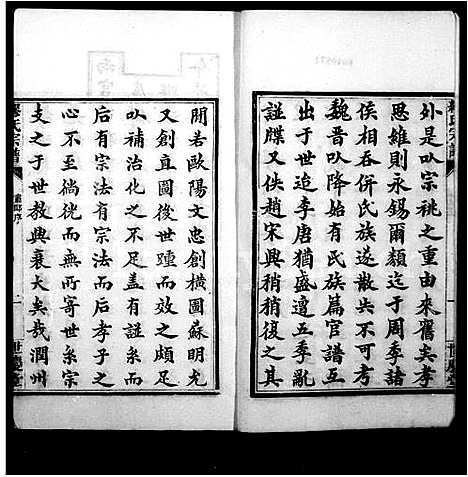 外是以宗祧之重由來舊矣孝
思維則永錫爾類迄于周季諸
侯相吞併氏族遂散失不可考
魏晋以降始有氏族篇官譜互
出于世迨李唐猶盛遭五季亂
諡牒又佚趙宋興稍稍復之其
間若歐陽文忠創横圖蘇明允
又創直圖後世踵而效之頗足
以補治化之不足葢有諡系而
後有宗法有宗法而后孝子之
心不至倘恍而無所寄世系宗
支之于世教興衰大矣哉潤州
氏宗譜
舊序
世慶堂